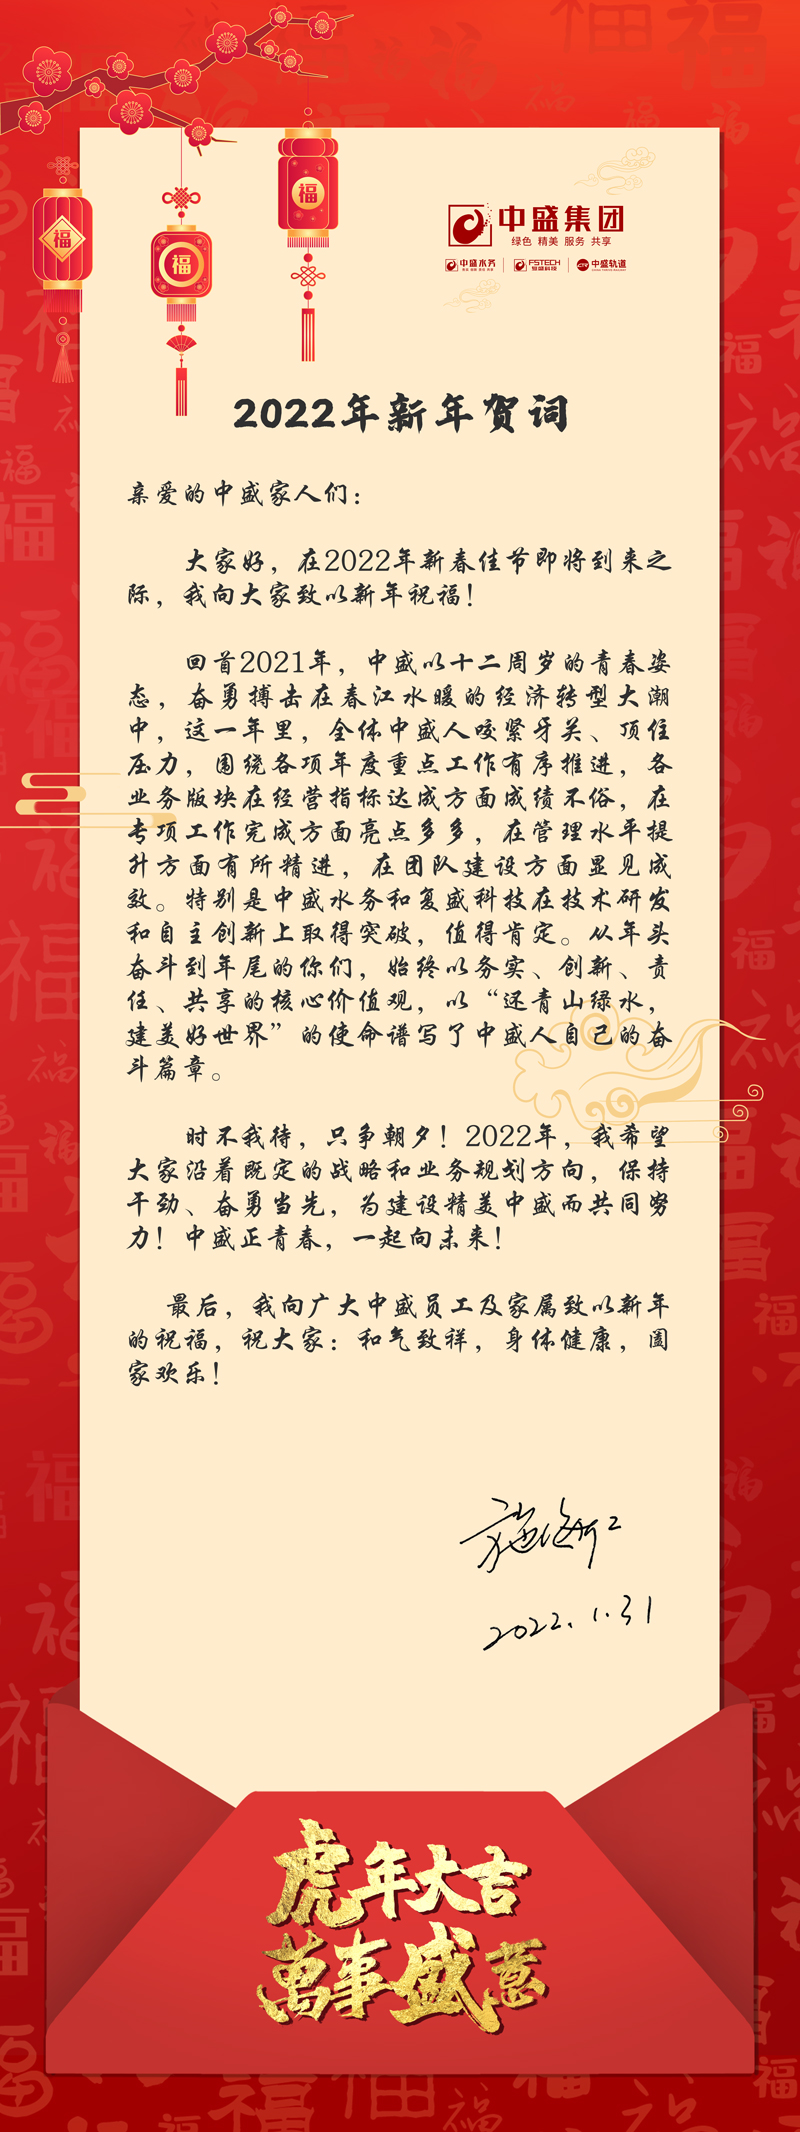 福
福
福
中盛集团
绿色 精美 服务 共享
中盛水务
FSTECH
复盛科技
中盛轨道
2022年新年贺词
亲爱的中盛家人们：
大家好，在2022年新春佳节即将到来之
际，我向大家致以新年祝福！
回首2021年，中盛以十二周岁的青春姿
态，奋勇搏击在春江水暖的经济转型大潮
中，这一年里，全体中盛人咬紧牙关、顶住
压力，围绕各项年度重点工作有序推进，各
业务版块在经营指标达成方面成绩不俗，在
专项工作完成方面亮点多多，在管理水平提
升方面有所精进，在团队建设方面显见成
效。特别是中盛水务和复盛科技在技术研发
和自主创新上取得突破，值得肯定。从年头
奋斗到年尾的你们，始终以务实、创新、责
任、共享的核心价值观，以“还青山绿水，
建美好世界”的使命谱写了中盛人自己的奋
斗篇章。
时不我待，只争朝夕！2022年，我希望
大家沿着既定的战略和业务规划方向，保持
干劲、奋勇当先，为建设精美中盛而共同努
力！中盛正青春，一起向未来！
最后，我向广大中盛员工及家属致以新年
的祝福，祝大家：和气致祥，身体健康，阖
家欢乐！
2022.1.31
虎年大吉
萬事盛意